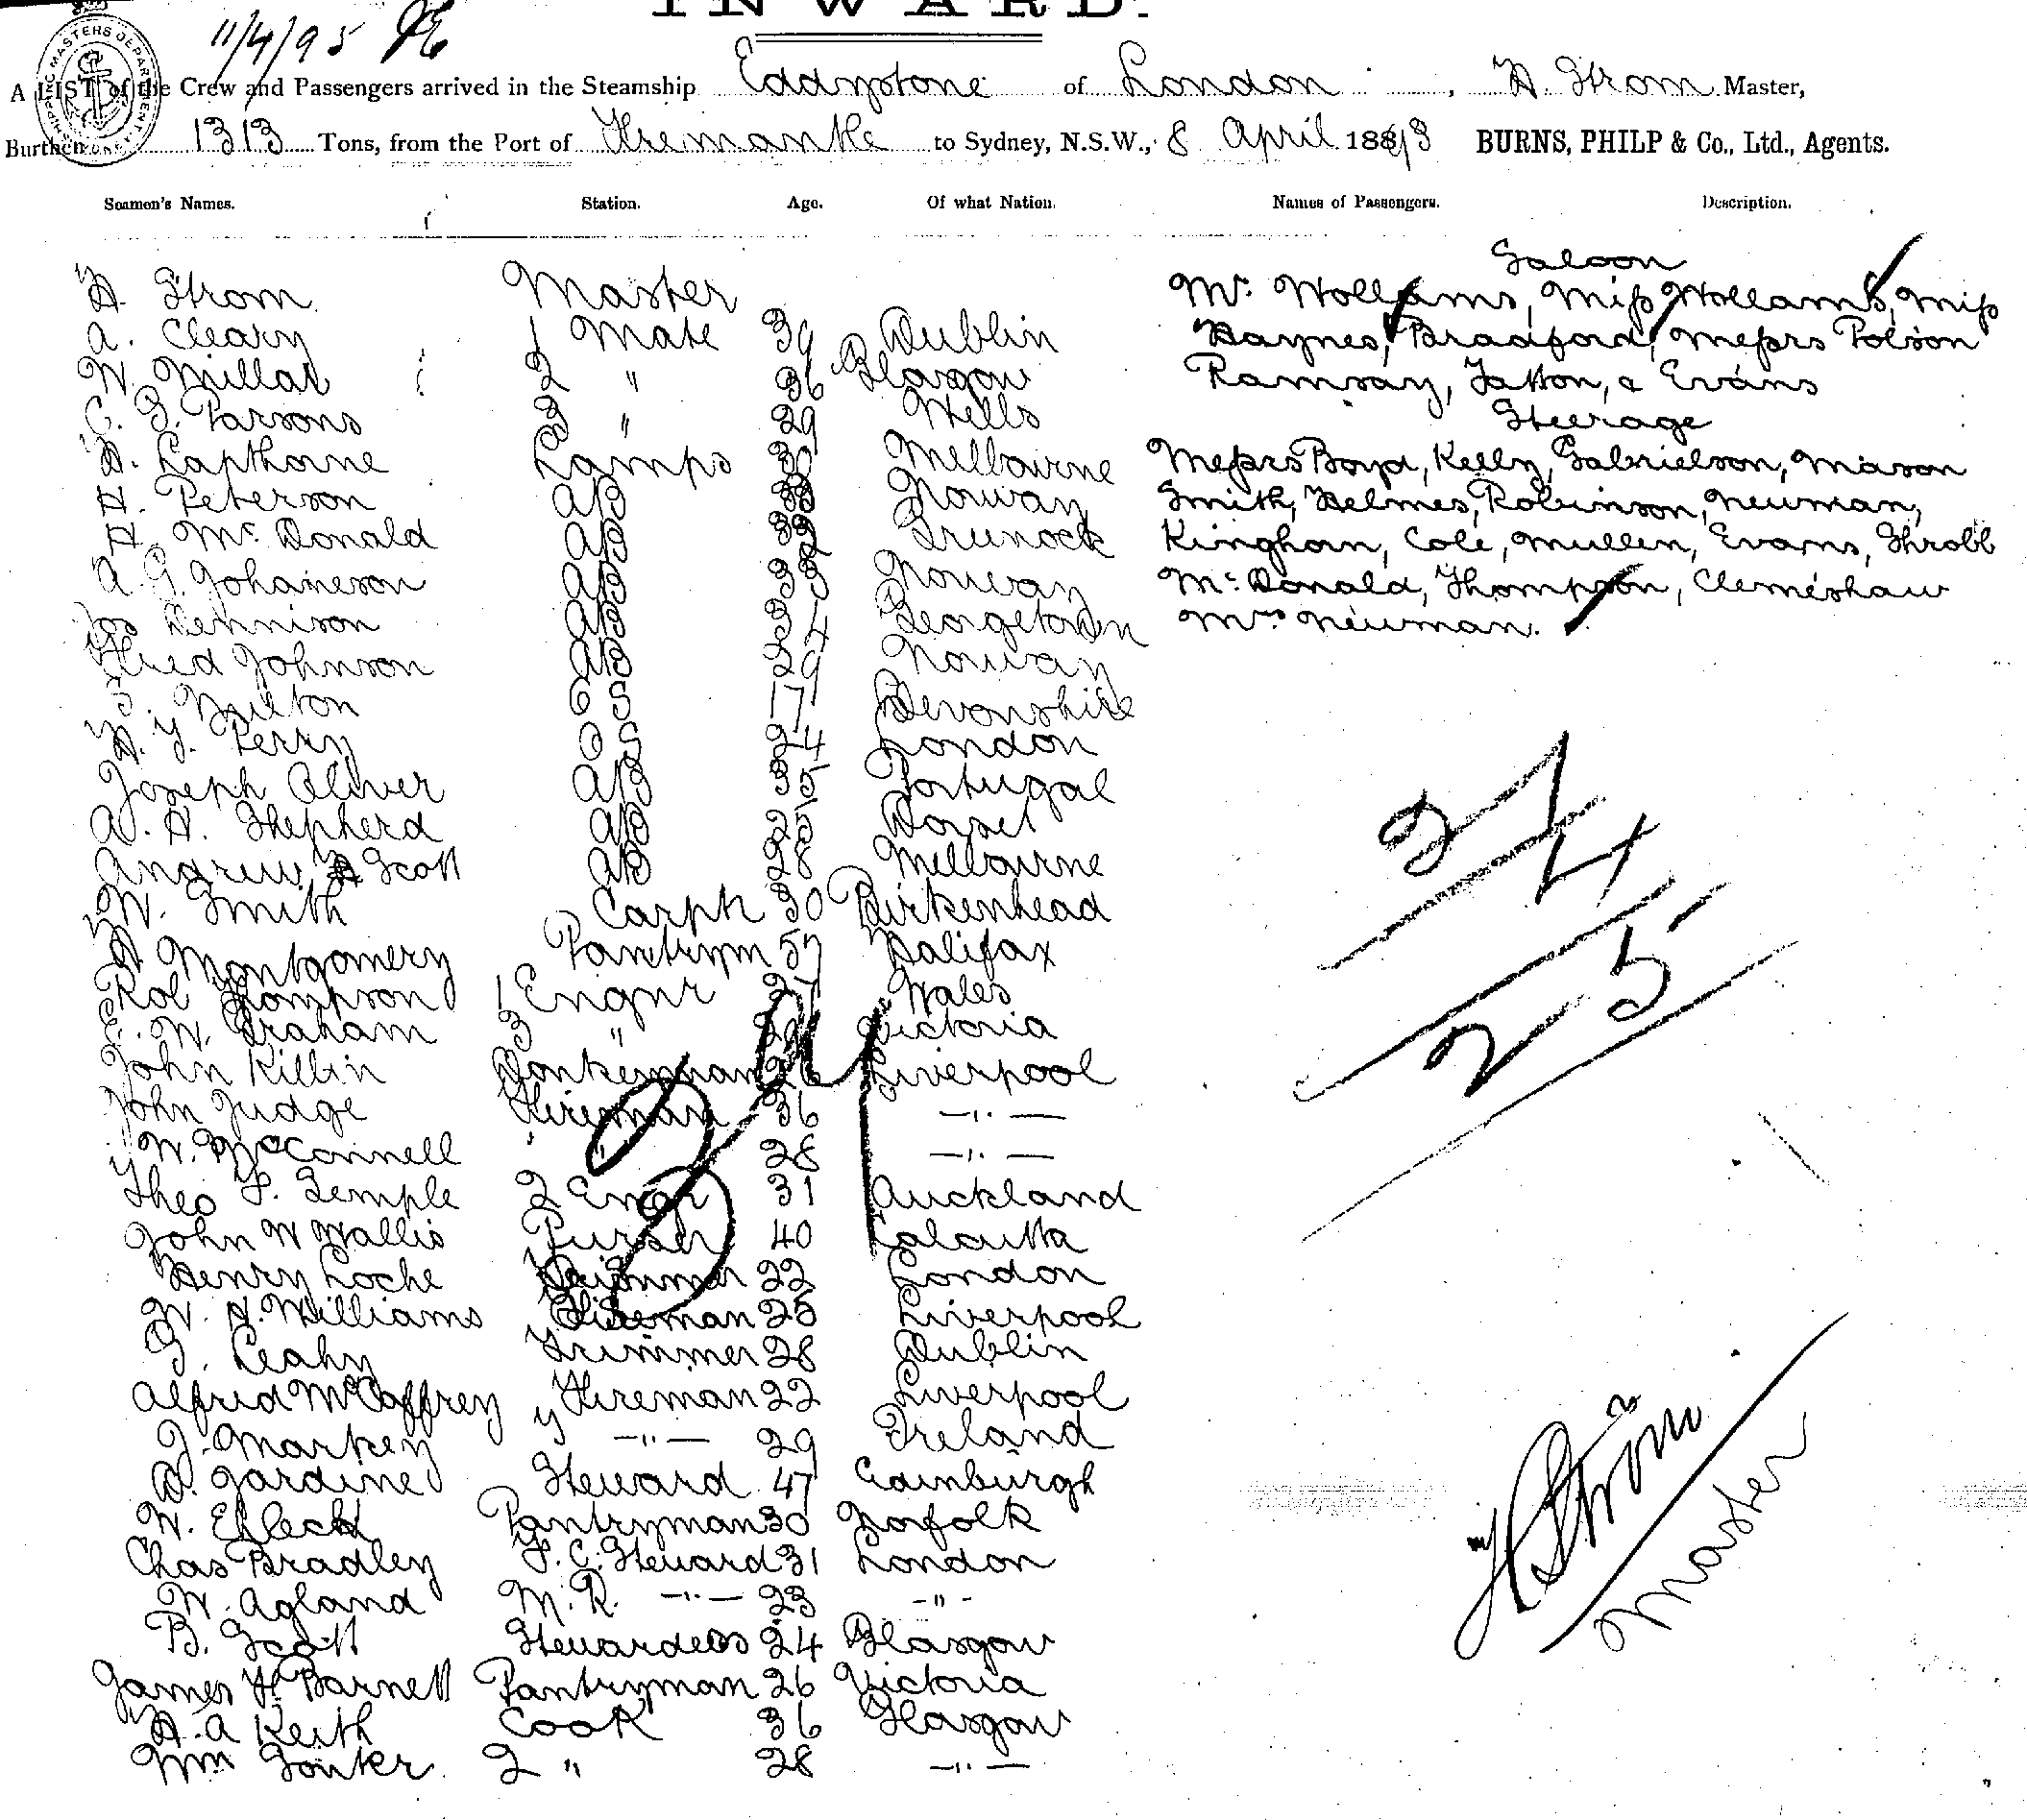 INWARD.
11/4/95
A LIST of the Crew and Passengers arrived in the Steamship Eddystone of London, H. Strom Master,
Burthen 1313 Tons, from the Port of Fremantle to Sydney, N.S.W., 8 April 189 BURNS, PHILP & Co., Ltd., Agents.
Seamen's Names. Station. Age. Of what Nation. Names of Passengers. Description.
H. Strom Master
A. Cleary 1 Mate 39 Dublin
W. Millar 2 " 36 Glasgow
C. B. Parsons 3 " 29 Wells
H. Lapthorne Lamps Melbourne
H. Peterson AB 38 Norway
H. McDonald AB Greenock
A. G. Johaneson AB 33 Norway
Jos Dennison AB 34 Georgetown
Fred Johnson AB 29 Norway
S. Milton OS 17 Devonshire
H. J. Perry OS 24 London
Joseph Oliver AB 35 Portugal
A. H. Shepherd AB 25 Dorset
Andrew H Scott AB 28 Melbourne
W. Smith Carptr 30 Birkenhead
H Montgomery Pantrym 57 Halifax
Rob Thompson 1 Engnr Wales
E. W. Graham 3 " Victoria
John Killin Donkeyman 26 Liverpool
John Judge Fireman 36 —"—
W. McConnell " 28 —"—
Theo P. Temple 2 Engr 31 Auckland
John W Wallis Purser 40 Calcutta
Henry Loche Trimmer 22 London
W. H. Williams Fireman 25 Liverpool
T. Leahy Trimmer 28 Dublin
Alfred McCaffrey Fireman 22 Liverpool
J. Markey —"— 29 Ireland
D. Jardine Steward 47 Edinburgh
W. Pantryman 30 Norfolk
Chas Bradley F. C. Steward 31 London
W. Agland M. R. —"— 23 -"-
B. Scott Stewardess 24 Glasgow
James H Barnett Pantryman 26 Victoria
H. A Keith Cook 36 Glasgow
Wm 2 " 28 —"—
Saloon
Mr. Wollams, Miss Wollams, Miss
Haynes, Bradford, Messrs Polson
Ramsay, Tatton, & Evans
Steerage
Messrs Boyd, Kelly, Gabrielson, Mason
Smith, Helmes, Robinson, Newman,
Kinghorn, Cole, Mullen, Evans, Throbb
McDonald, Thompson, Clemeshaw
Mrs Newman.
24
25
39
H Strom
Master